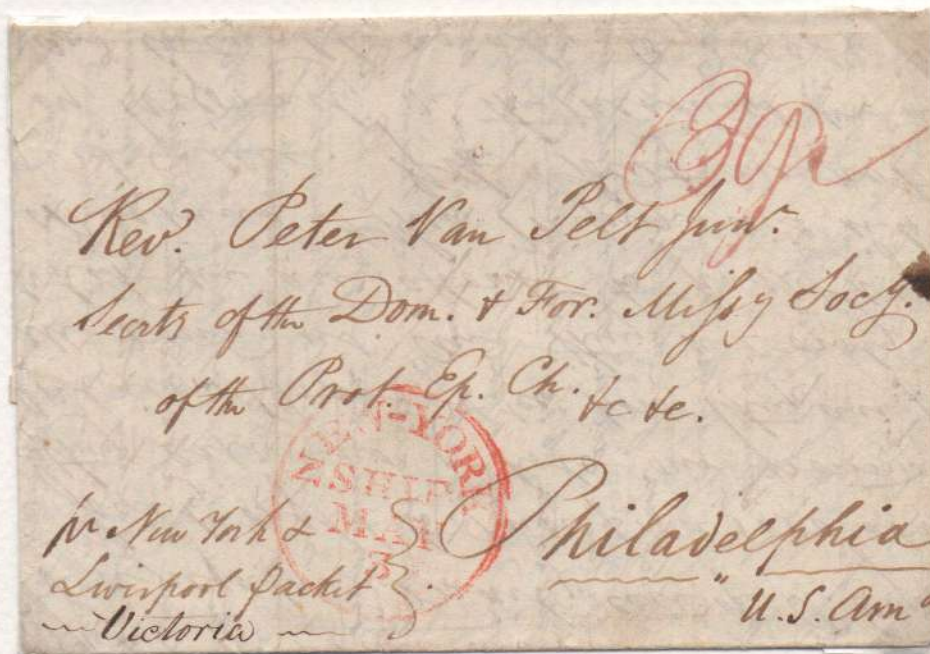 Rev. Peter Van Pelt Junr.
Secrty of the Dom. & For. Missy Socy.
of the Prot. Ep. Ch. &c &c.
NEW-YORK
SHIP
MAY
3
pr New York &
Liverpool Packet
Victoria
Philadelphia
U.S. Am